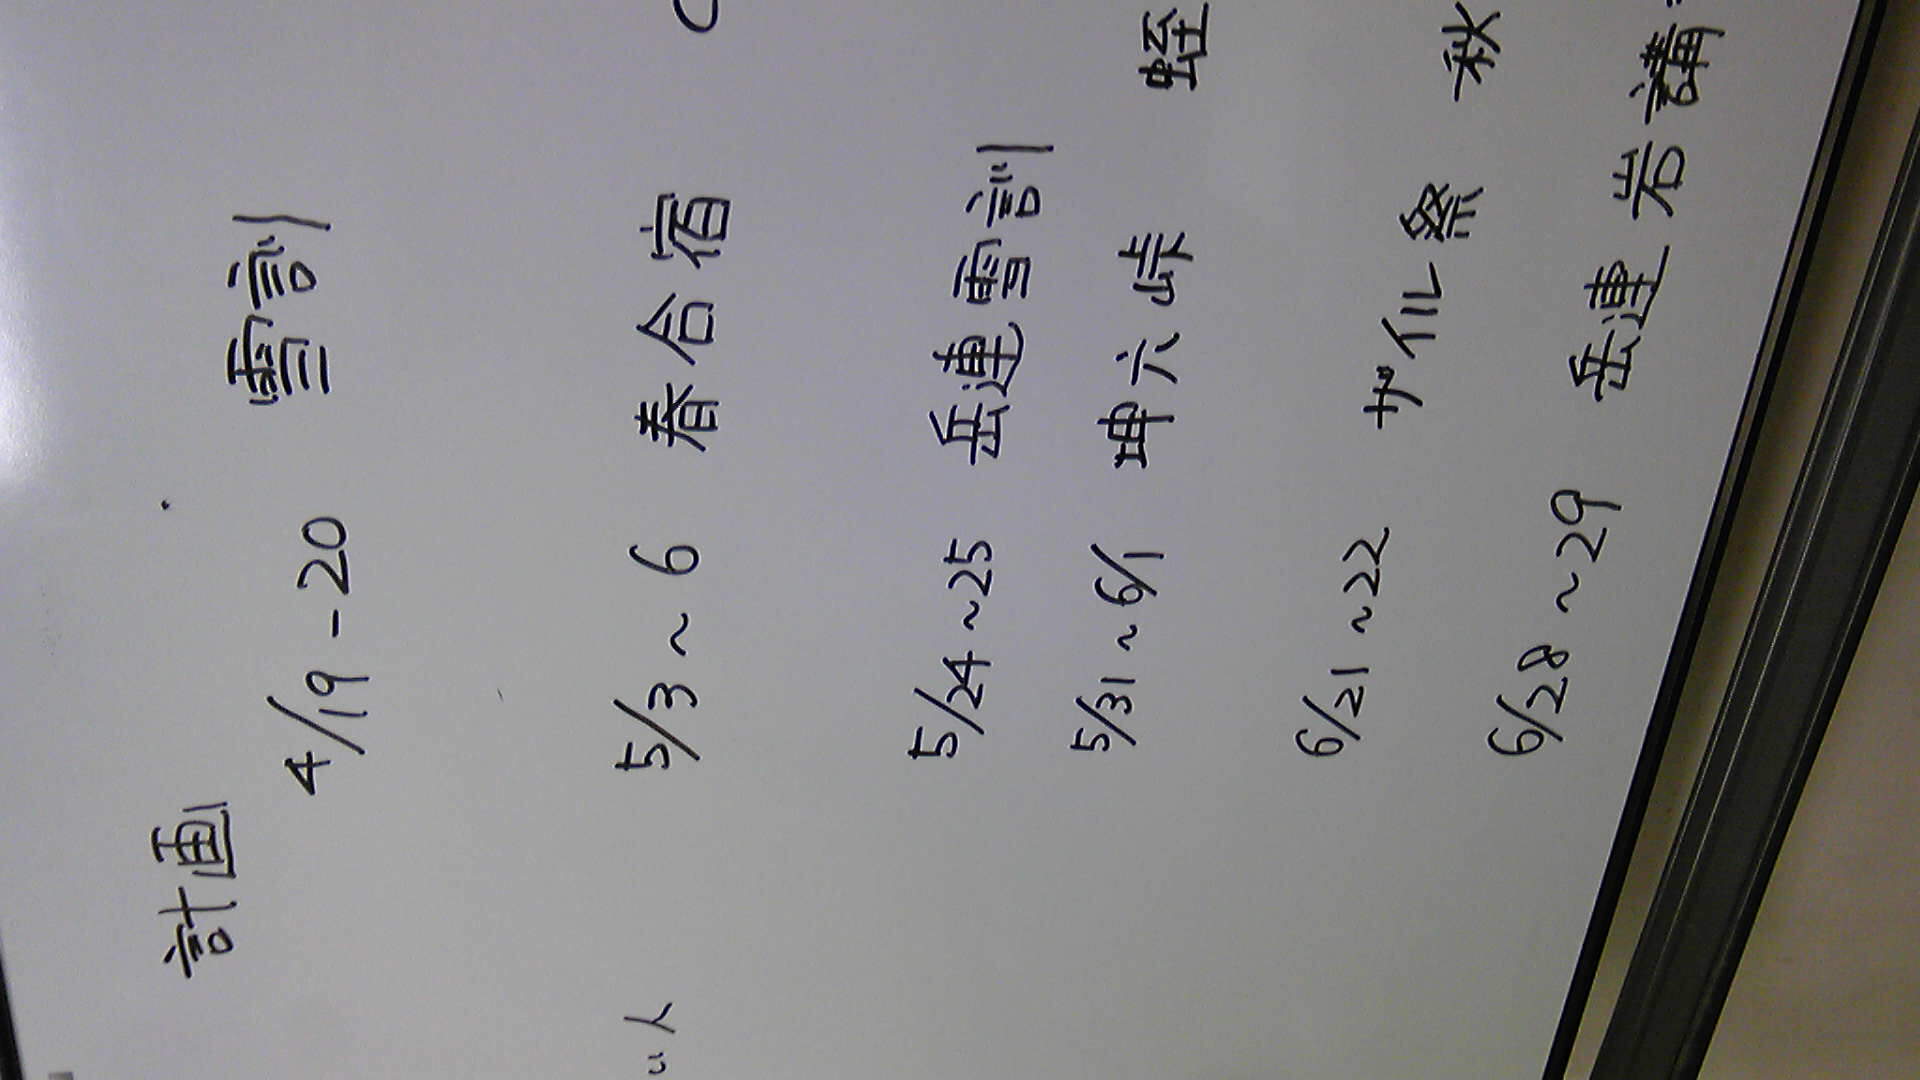 計画
4/19-20 雪訓
5/3~6 春合宿
5/24~25 岳連雪訓
5/31~6/1 坤六峠
6/21~22 ザイル祭 秋
6/28~29 岳連岩講